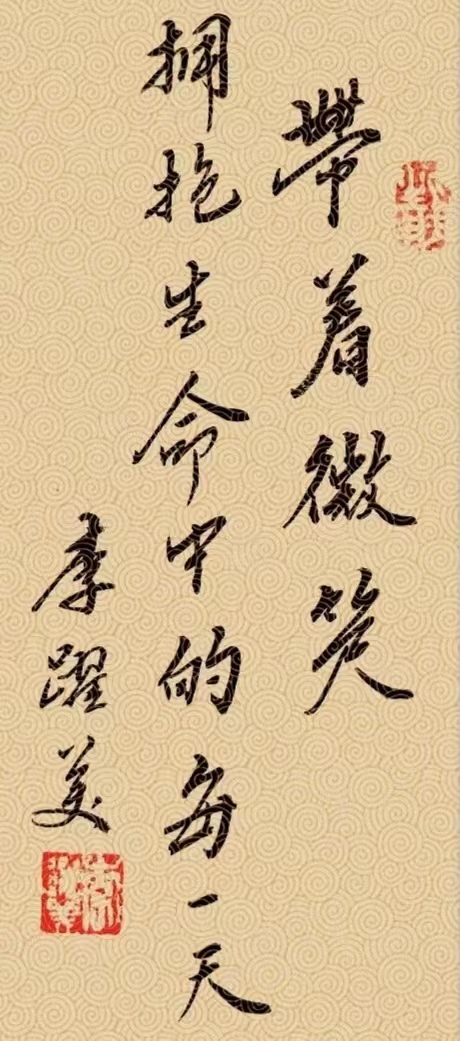 帶着微笑
拥抱生命中的每一天
李躍美